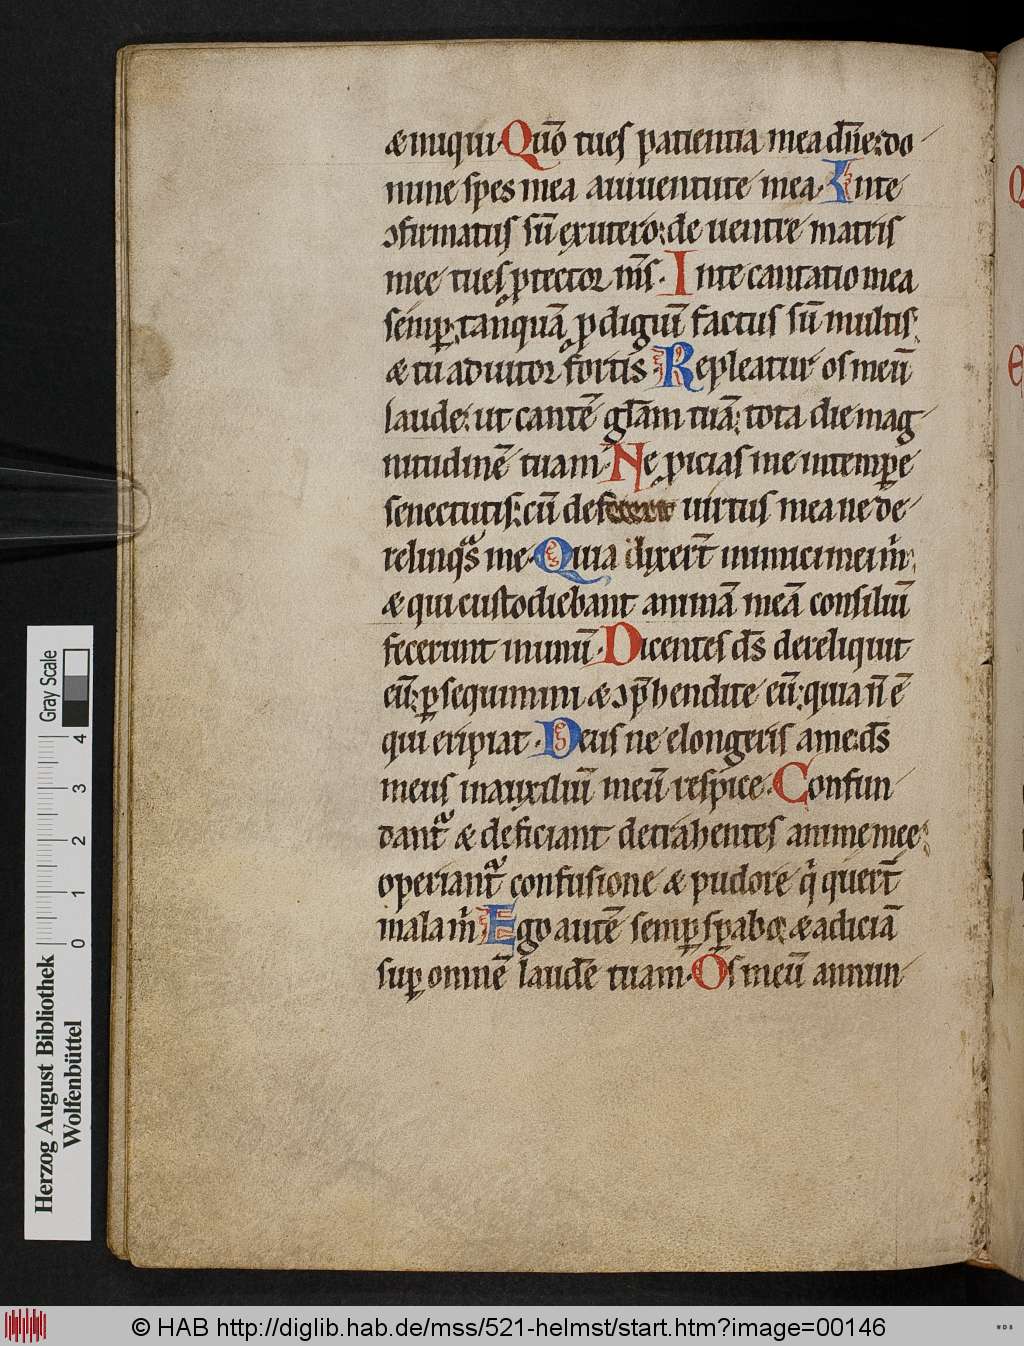 & iniqui. Qm̄o tu es patientia mea dn̄e: do
mine spes mea a iuuentute mea. In te
ↄfirmatus sū ex utero: de uentre matris
mee tu es ꝓtector m̄s. In te cantatio mea
semꝑ: tanquā ꝓdigiuī factus sū multis:
& tu adiutor fortis. Repleatur os meū
laude: ut cantē glām tuā: tota die mag
nitudinē tuam. Ne ꝓicias me in tempe
senectutis: cū defecerit uirtus mea ne de
relinqͣs me. Quia dixert̄ inimici mei m̄:
& qui custodiebant animā meā consiliū
fecerunt in unū. Dicentes ds̄ dereliquit
eū: ꝑsequimini & ↄp̄hendite eū: quia n̄ ē
qui eripiat. Deus ne elongeris a me: ds̄
meus in auxiliū meū respice. Confun
dantᷓ & deficiant detrahentes anime mee:
operiantᷓ confusione & pudore qͥ quert̄
mala m̄. Ego autē semꝑ sꝑabo: & adiciā
suꝑ omnē laudē tuam. Os meū annun
Gray Scale
4
3
2
1
0
Herzog August Bibliothek
Wolfenbüttel
© HAB http://diglib.hab.de/mss/521-helmst/start.htm?image=00146
WDB